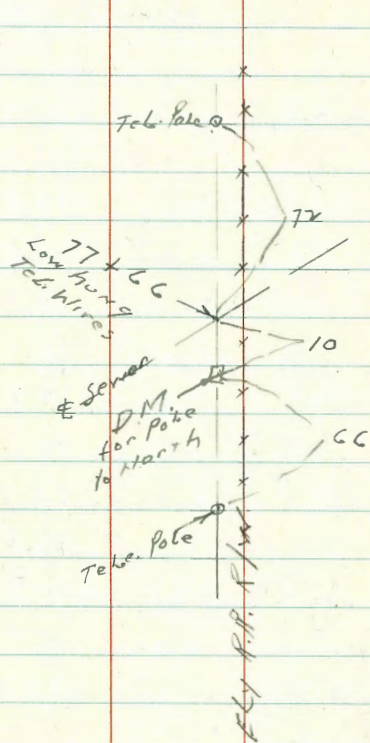 Tel. Pole
72
77 x 66
Low hung
Tel. Wires
10
℄ Sewer
D.M.
for Pole
to North
66
Tele. Pole
Ely R.R. R/W